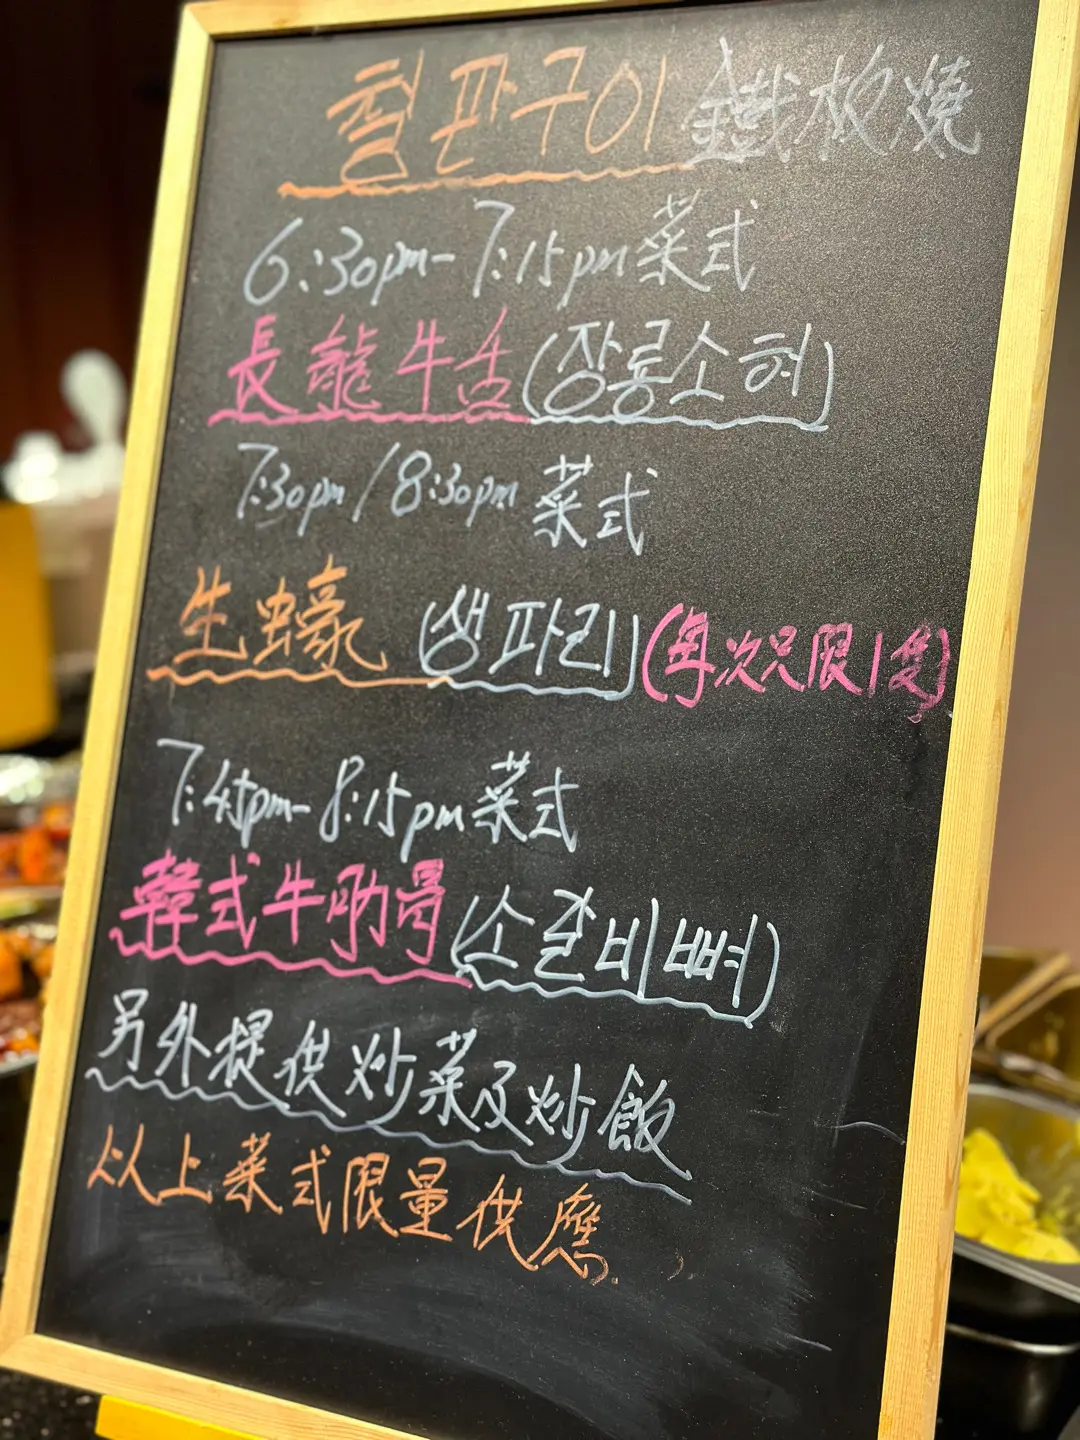 철판구이 鐵板燒
6:30pm-7:15pm 菜式
長龍牛舌(장룡소혀)
7:30pm/8:30pm 菜式
生蠔 (생파리)(每次只限1隻)
7:45pm-8:15pm 菜式
韓式牛肋骨(소갈비뼈)
另外提供炒菜及炒飯
以上菜式限量供應